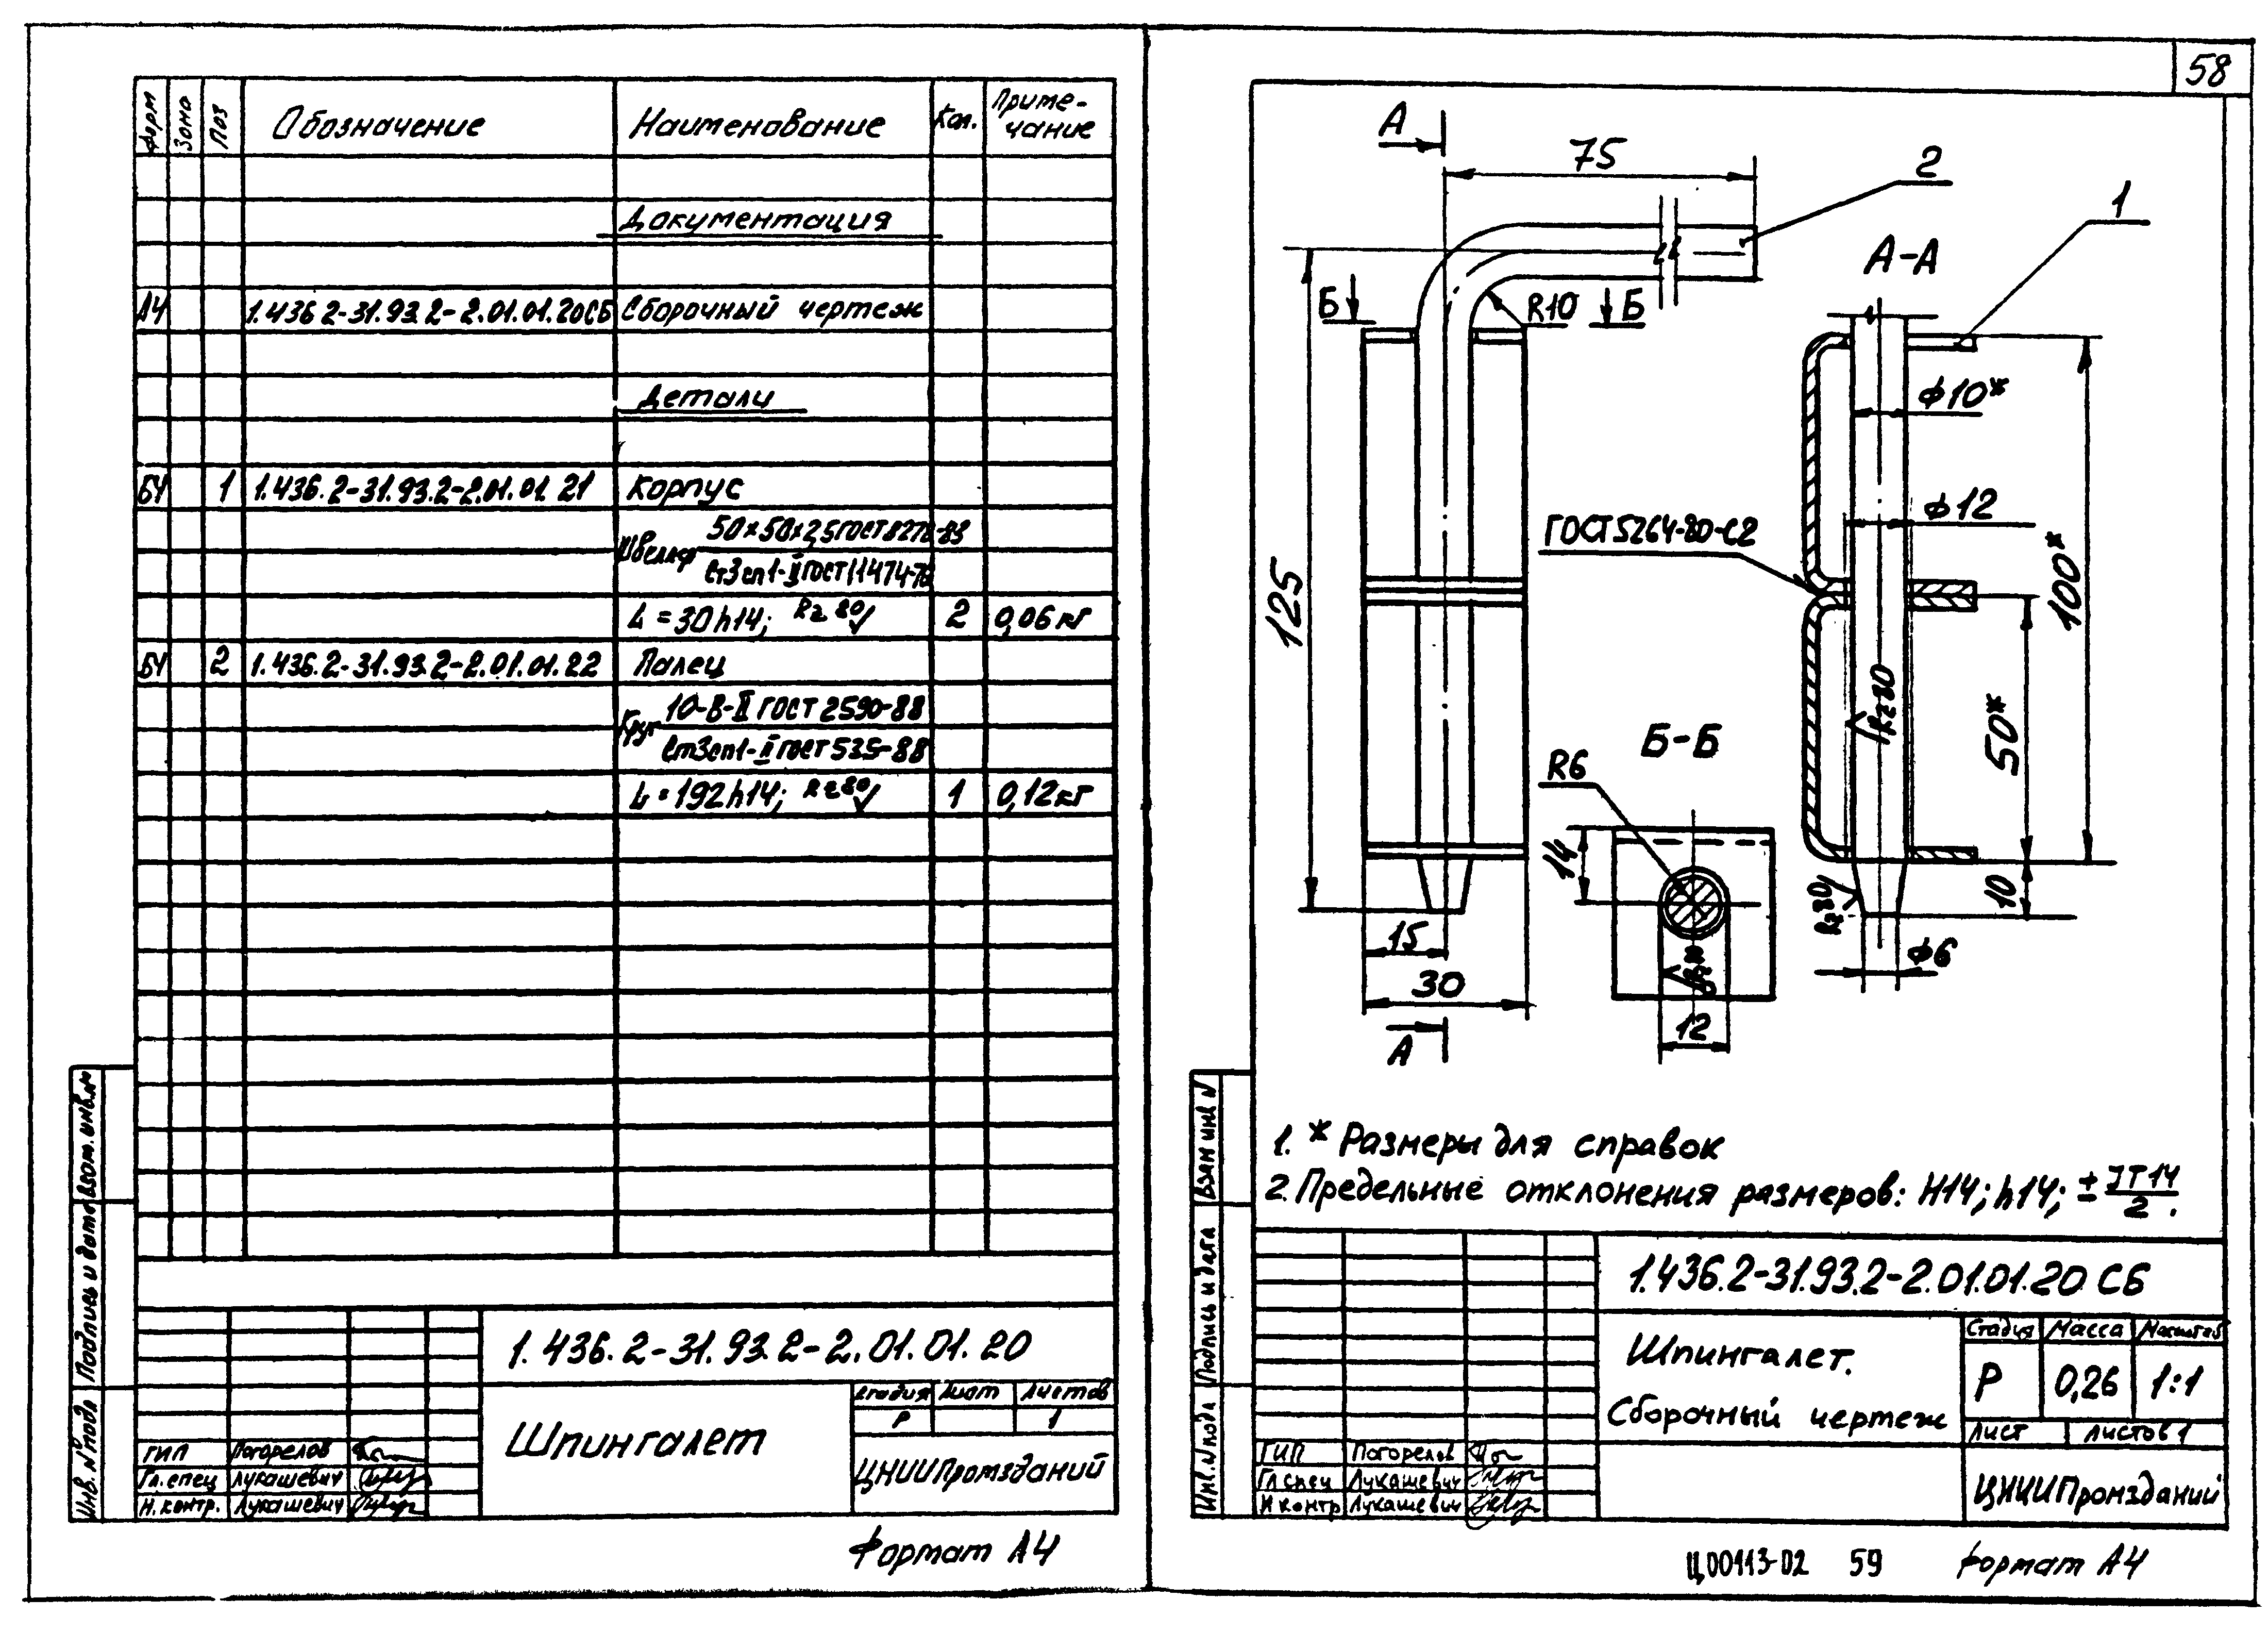 Форм Зона Поз Обозначение Наименование Кол. Приме-
чание
Документация
А4 1.436.2-31.93.2-2.01.01.20СБ Сборочный чертеж
Детали
БЧ 1 1.436.2-31.93.2-2.01.01.21 Корпус
Швеллер 50×50×2,5 ГОСТ 8278-83
Ст3сп1-II ГОСТ 11474-76
L=30h14; Rz 80 2 0,06кг
БЧ 2 1.436.2-31.93.2-2.01.01.22 Палец
Круг 10-В-II ГОСТ 2590-88
Ст3сп1-II ГОСТ 535-88
L=192h14; Rz 80 1 0,12кг
Взам. инв. №
Подпись и дата
Инв. № подл
1.436.2-31.93.2-2.01.01.20
Шпингалет
Стадия Лист Листов
Р 1
ЦНИИПромзданий
ГИП Погорелов
Гл. спец Лукашевич
Н. контр. Лукашевич
Формат А4
58
А
75
2
1
А-А
Б
R10
Б
ϕ10*
ϕ12
ГОСТ 5264-80-С2
125
100*
50*
Rz 80
Б-Б
R6
14
10
Rz 80
ϕ6
15
30
Rz 80
12
А
1. * Размеры для справок
2. Предельные отклонения размеров: H14; h14; ± IT14/2.
Взам инв N
Подпись и дата
Инв. N подл
1.436.2-31.93.2-2.01.01.20 СБ
Шпингалет.
Сборочный чертеж
Стадия Масса Масштаб
Р 0,26 1:1
Лист Листов 1
ЦНИИПромзданий
ГИП Погорелов
Гл спец Лукашевич
Н контр Лукашевич
Ц00113-02 59 Формат А4